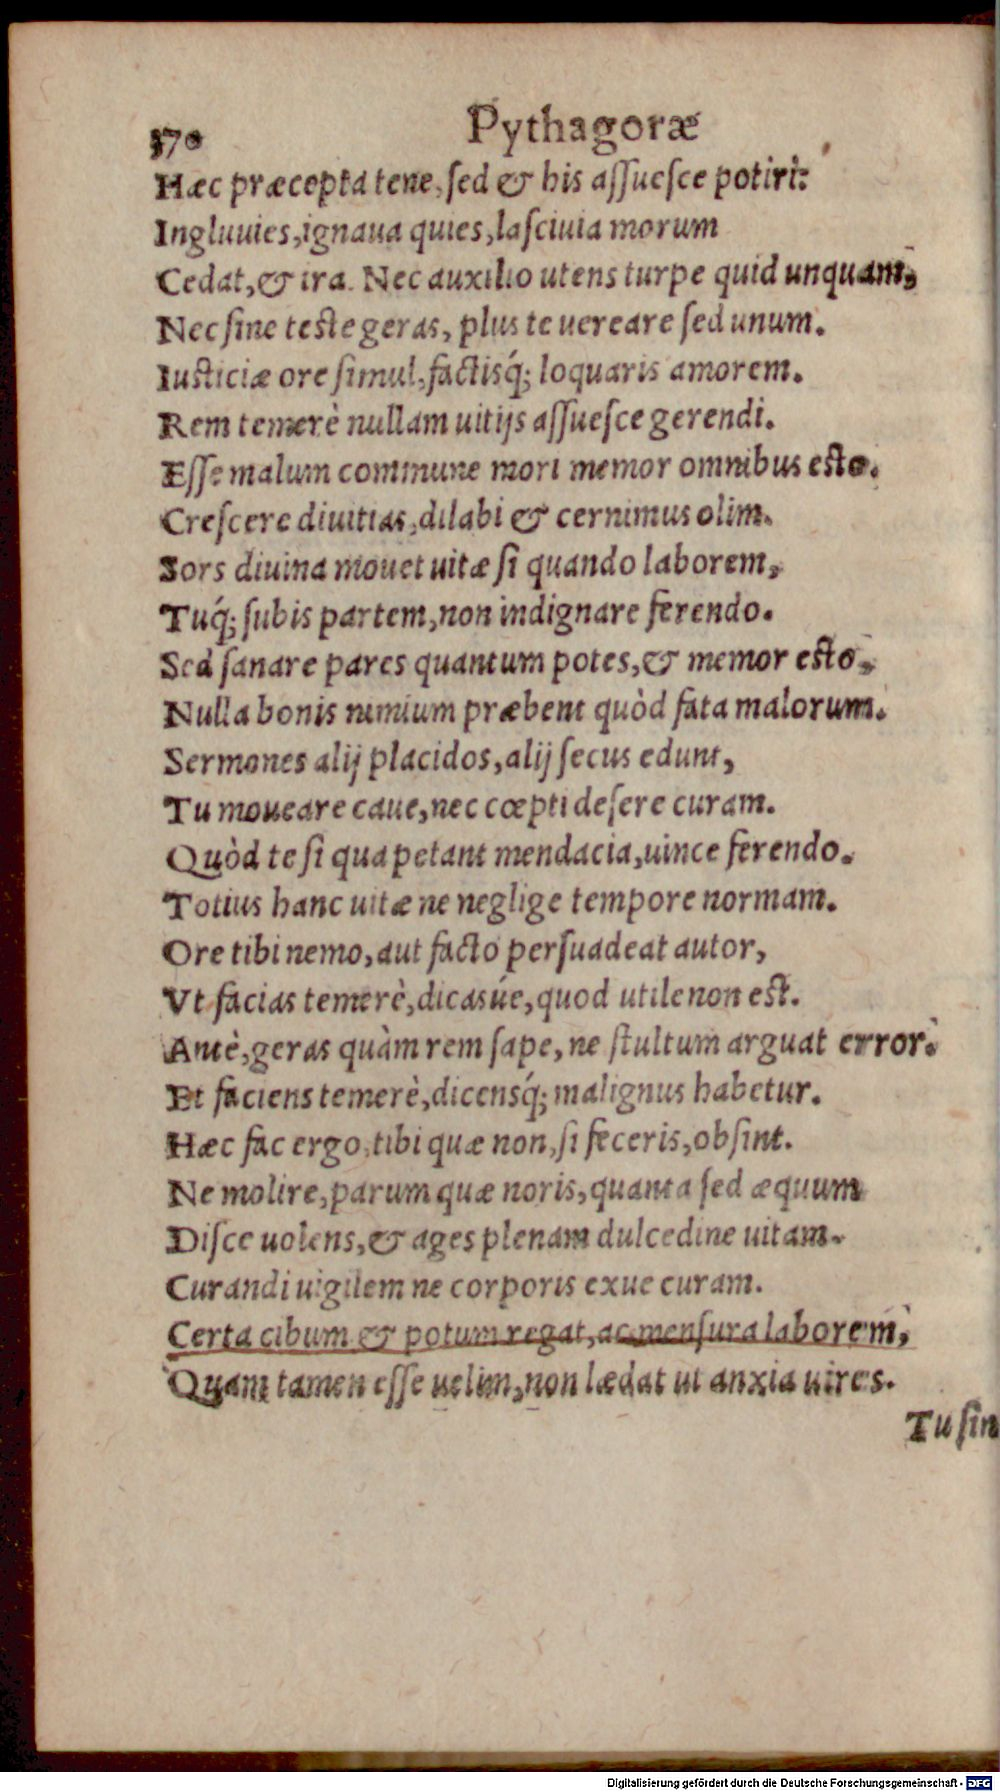 370 Pythagoræ
Hæc præcepta tene, sed & his assuesce potiri:
Ingluuies, ignaua quies, lasciuia morum
Cedat, & ira. Nec auxilio utens turpe quid unquam,
Nec sine teste geras, plus te uereare sed unum.
Iusticiæ ore simul, factisq́; loquaris amorem.
Rem temerè nullam uitijs assuesce gerendi.
Esse malum commune mori memor omnibus esto.
Crescere diuitias, dilabi & cernimus olim.
Sors diuina mouet uitæ si quando laborem,
Tuq́; subis partem, non indignare ferendo.
Sed sanare pares quantum potes, & memor esto,
Nulla bonis nimium præbent quòd fata malorum.
Sermones alij placidos, alij secus edunt,
Tu moueare caue, nec cœpti desere curam.
Quòd te si qua petant mendacia, uince ferendo.
Totius hanc uitæ ne neglige tempore normam.
Ore tibi nemo, aut facto persuadeat autor,
Vt facias temerè, dicasúe, quod utile non est.
Antè, geras quàm rem sape, ne stultum arguat error.
Et faciens temerè, dicensq́; malignus habetur.
Hæc fac ergo, tibi quæ non, si feceris, obsint.
Ne molire, parum quæ noris, quanta sed æquum
Disce uolens, & ages plenam dulcedine uitam.
Curandi uigilem ne corporis exue curam.
Certa cibum & potum regat, ac mensura laborem,
Quam tamen esse uelim, non lædat ut anxia uires.
Tu sin
Digitalisierung gefördert durch die Deutsche Forschungsgemeinschaft - DFG